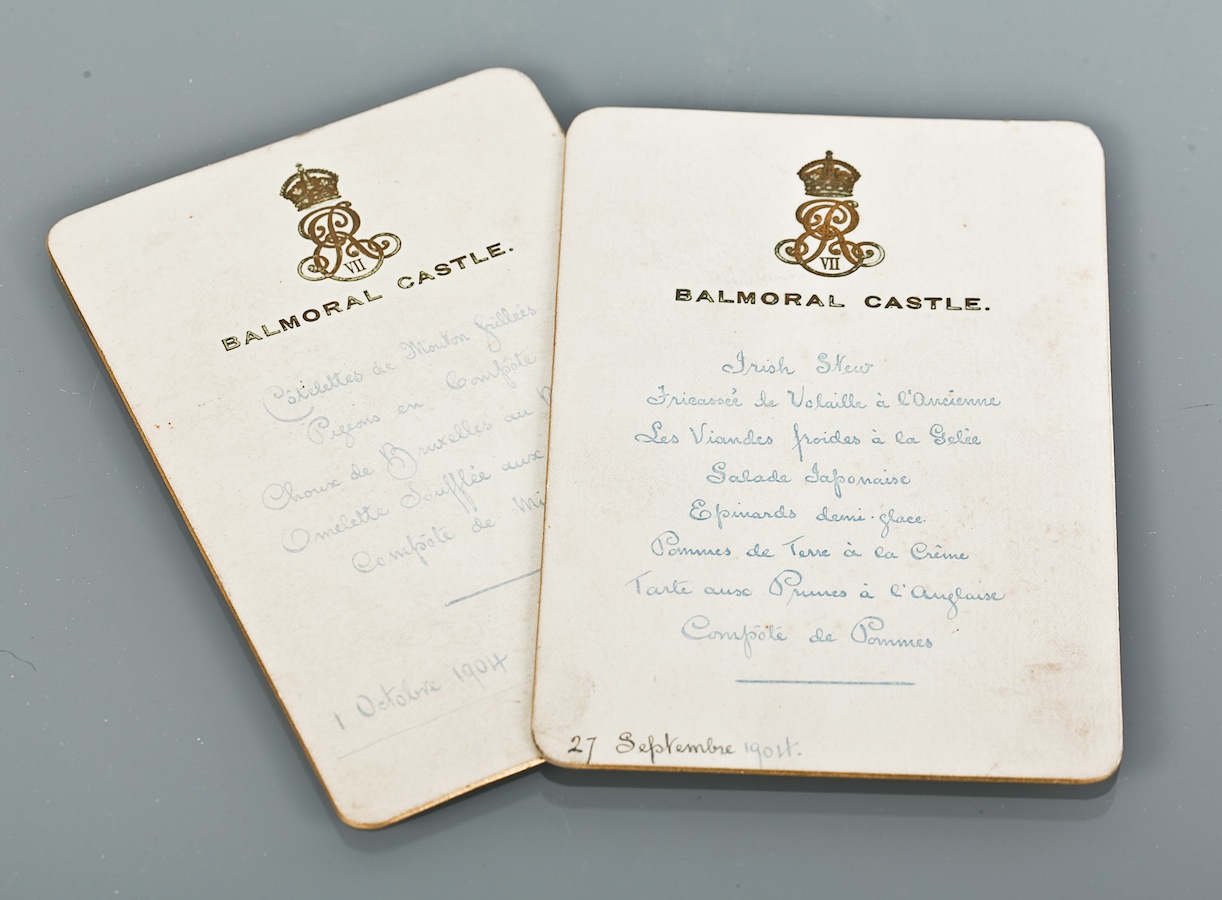 VII
BALMORAL CASTLE.
Côtelettes de Mouton grillées
Pigeons en Compôte
Choux de Bruxelles au
Omelette Soufflée aux
Compôte de
1 Octobre 1904
VII
BALMORAL CASTLE.
Irish Stew
Fricassée de Volaille à l'Ancienne
Les Viandes froides à la Gelée
Salade Japonaise
Epinards demi-glace.
Pommes de Terre à la Crême
Tarte aux Prunes à l'Anglaise
Compôte de Pommes
27 Septembre 1904.